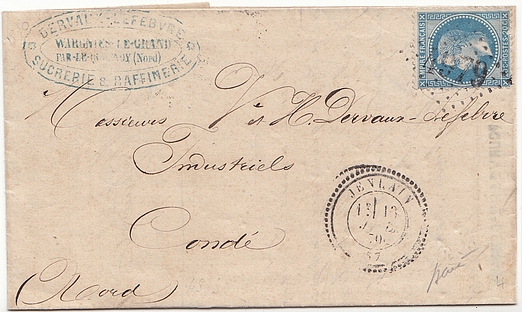 DERVAUX-LEFEBVRE
WARGNIES-LE-GRAND
PAR-LE-QUESNOY (Nord)
SUCRERIE & RAFFINERIE
EMPIRE FRANÇAIS
Messieurs Vr et H. Dervaux-Lefebvre
Industriels
Condé
(Nord)
JENLAIN
70
57